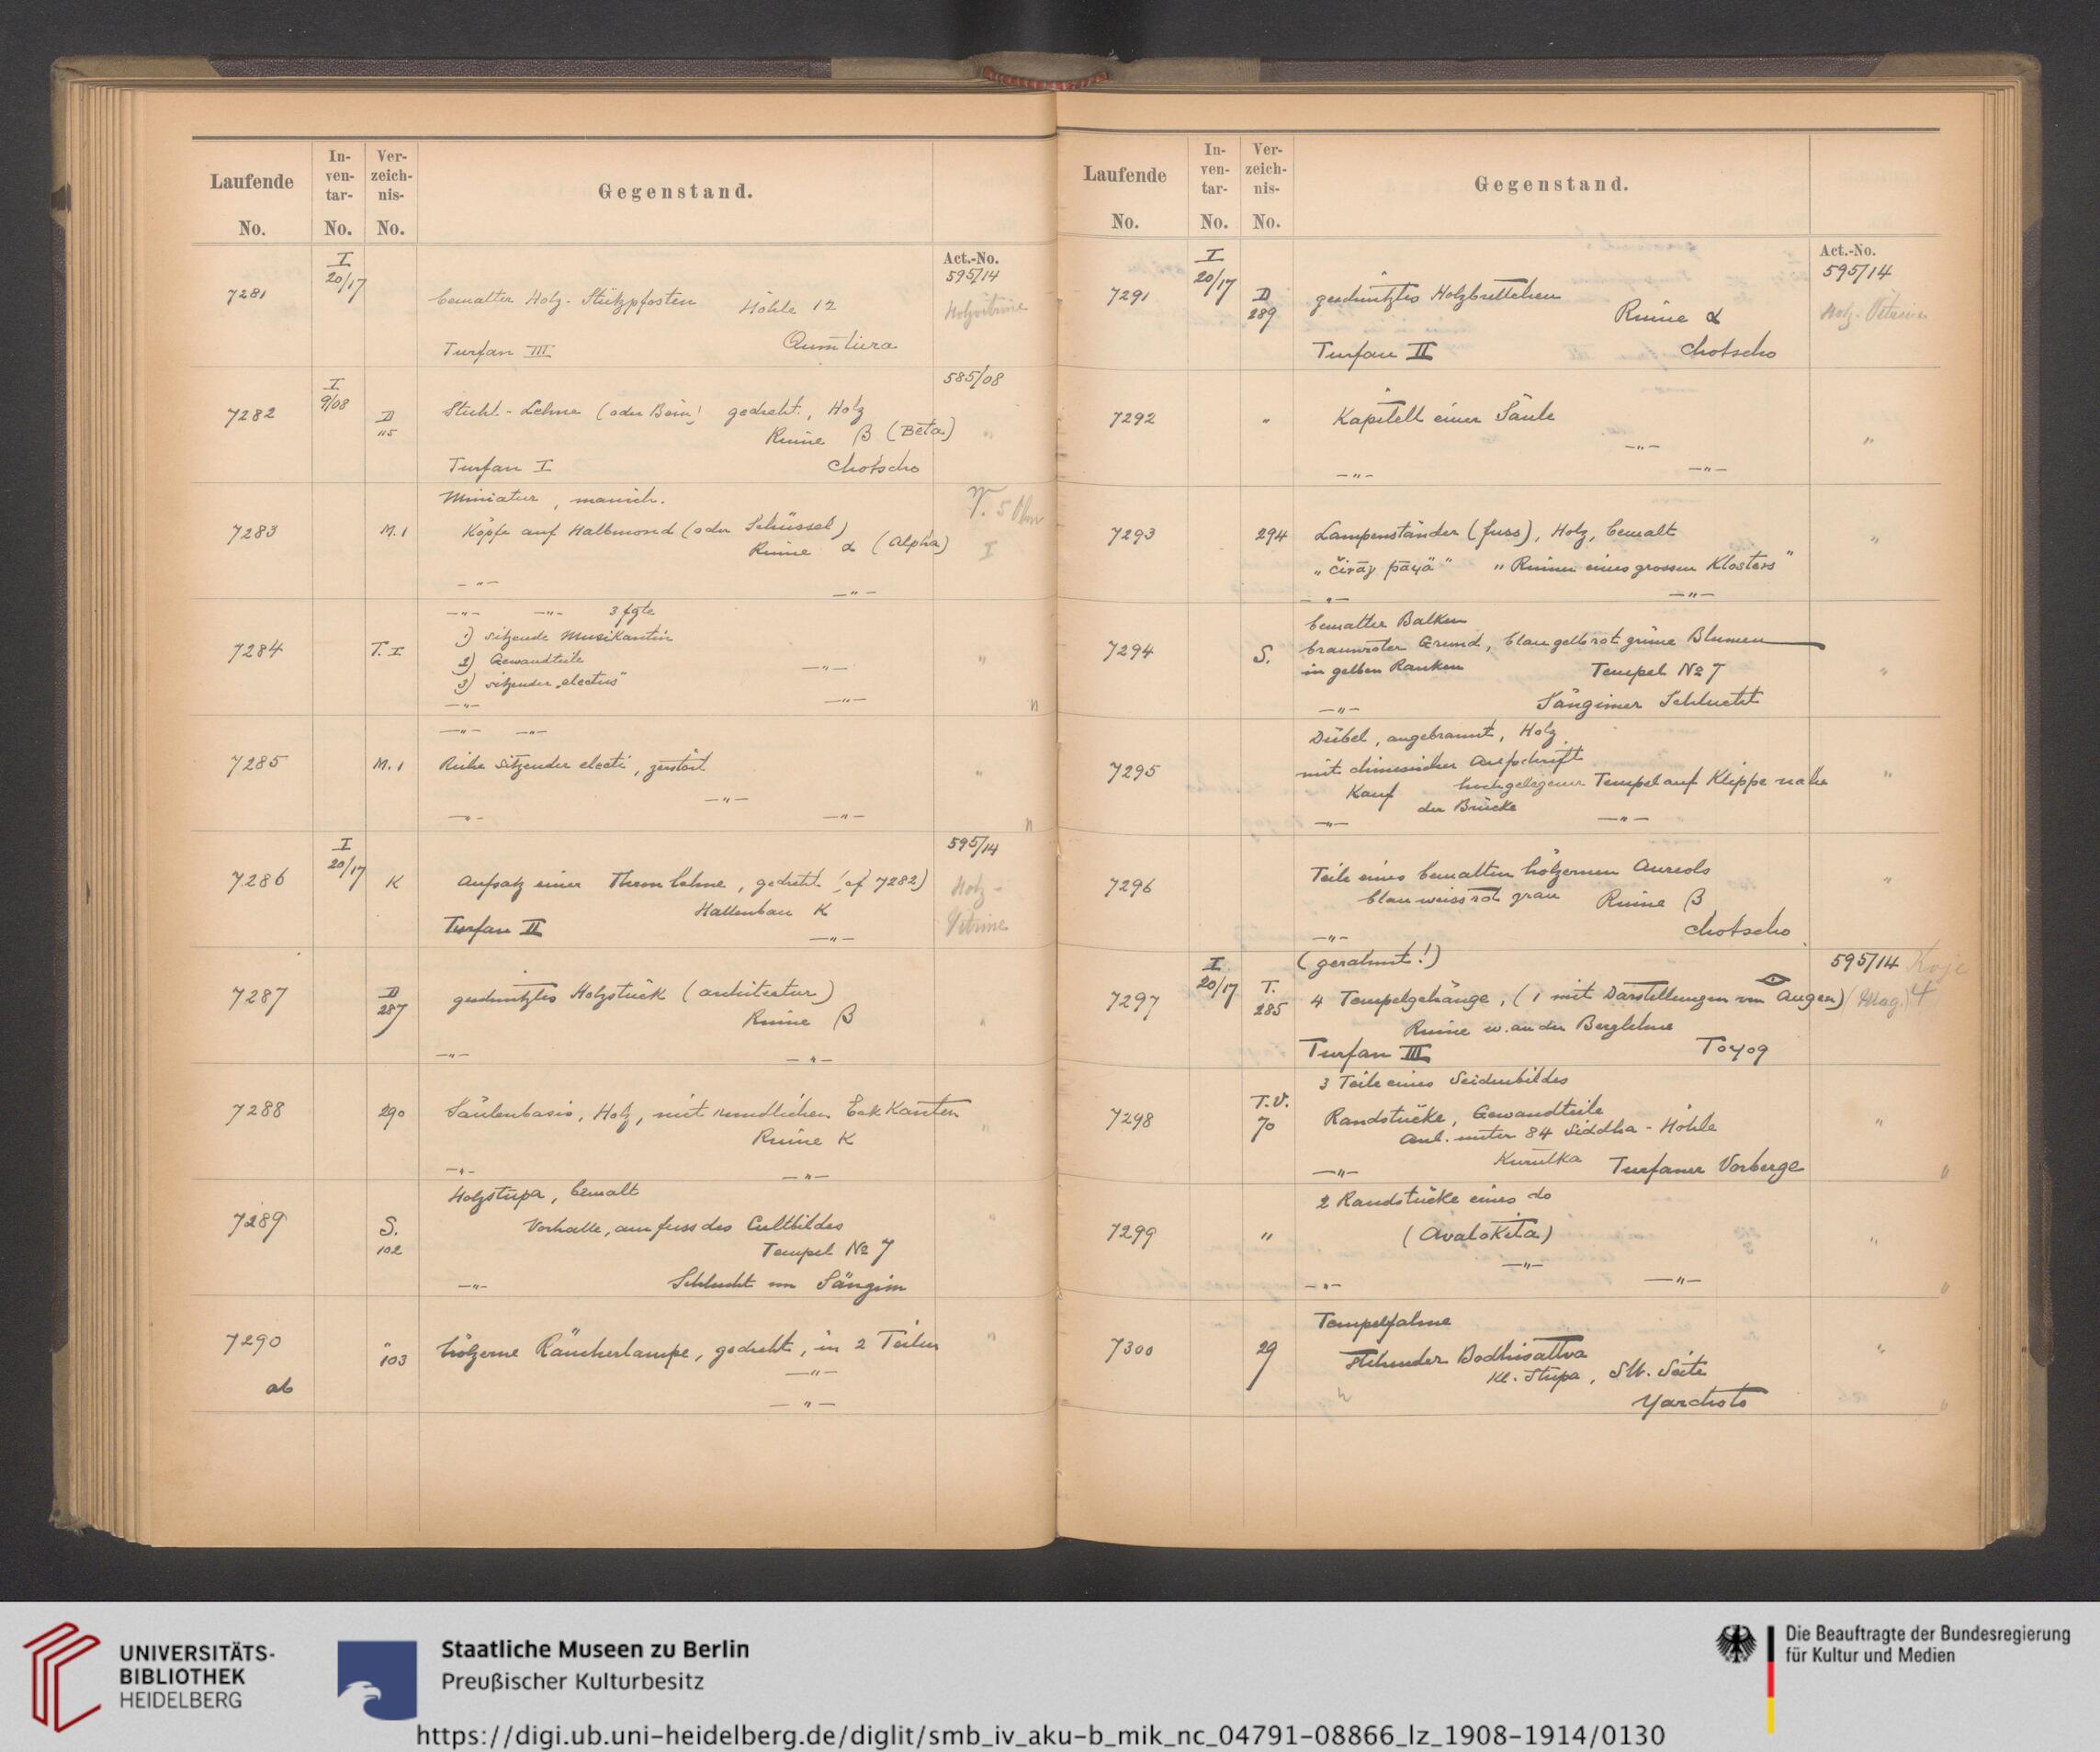 Laufende No.
In-ven-tar- No.
Ver-zeich-nis- No.
Gegenstand.
Act.-No.
7281
I 20/17
bemalter Holz-Stützpfosten Höhle 12
595/14
Holzvitrine
Turfan III Qumtura
7282
I 9/08
D 115
Stuhl-Lehne (oder Bein! gedreht, Holz
585/08
Ruine β (Beta) "
Turfan I Chotscho
7283
M. 1
Miniatur, manich.
Köpfe auf Halbmond (oder Schüssel)
Ruine α (Alpha) I
–"– –"–
7284
T. I
–"– –"– 3 fgte
1) sitzende Musikantin
2) Gewandteile –"– "
3) sitzender "electus"
–"– –"–
7285
M. 1
–"– –"–
Reihe sitzender electi, zerstört "
–"–
–"– –"–
7286
I 20/17
K
Aufsatz einer Thronlehne, gedreht (cf 7282)
595/14
Holz-Vitrine
Hallenbau K
Turfan II –"–
7287
D 287
geschnitztes Holzstück (architectur)
Ruine β "
–"– –"–
7288
290
Säulenbasis, Holz, mit rundlichen Eck Kanten
Ruine K "
–"– –"–
7289
S. 102
Holzstupa, bemalt
Vorhalle, am fuss des Cultbildes "
Tempel № 7
–"– Schlucht von Sängim
7290
" 103
hölzerne Räucherlampe, gedreht, in 2 Teilen "
–"–
ab
–"–
Laufende No.
In-ven-tar- No.
Ver-zeich-nis- No.
Gegenstand.
Act.-No.
7291
I 20/17
D 289
geschnitztes Holzbrettchen
595/14
Holz-Vitrine
Ruine α
Turfan II Chotscho
7292
"
Kapitell einer Säule
–"– "
–"– –"–
7293
294
Lampenständer (fuss), Holz, bemalt "
"čirāγ pāyä" "Ruinen eines grossen Klosters"
–"– –"–
7294
S.
bemalter Balken
braunroter Grund, blau gelb rot grüne Blumen
in gelben Ranken Tempel № 7 "
–"– Sängimer Schlucht
7295
Dübel, angebrannt, Holz
mit chinesischer Aufschrift
Kauf hochgelegener Tempel auf Klippe nahe "
der Brücke
–"– –"–
7296
Teile eines bemalten hölzernen Aureols "
blau weiss rot grau Ruine β
–"– Chotscho
7297
I 20/17
T. 285
(gerahmt!)
595/14 Koje 4
4 Tempelgehänge, (1 mit Darstellungen von Augen) (Mag.)
Ruine w. an der Berglehne
Turfan III Toyog
7298
T.V. 70
3 Teile eines Seidenbildes
Randstücke, Gewandteile "
Anl. unter 84 Siddha-Höhle
–"– Kurutka Turfaner Vorberge
7299
"
2 Randstücke eines do
(Avalokita) "
–"–
–"– –"–
7300
29
Tempelfahne
stehender Bodhisattva "
Kl. Stupa, SW. Seite
Yarchoto
UNIVERSITÄTS-
BIBLIOTHEK
HEIDELBERG
Staatliche Museen zu Berlin
Preußischer Kulturbesitz
Die Beauftragte der Bundesregierung
für Kultur und Medien
https://digi.ub.uni-heidelberg.de/diglit/smb_iv_aku-b_mik_nc_04791-08866_lz_1908-1914/0130